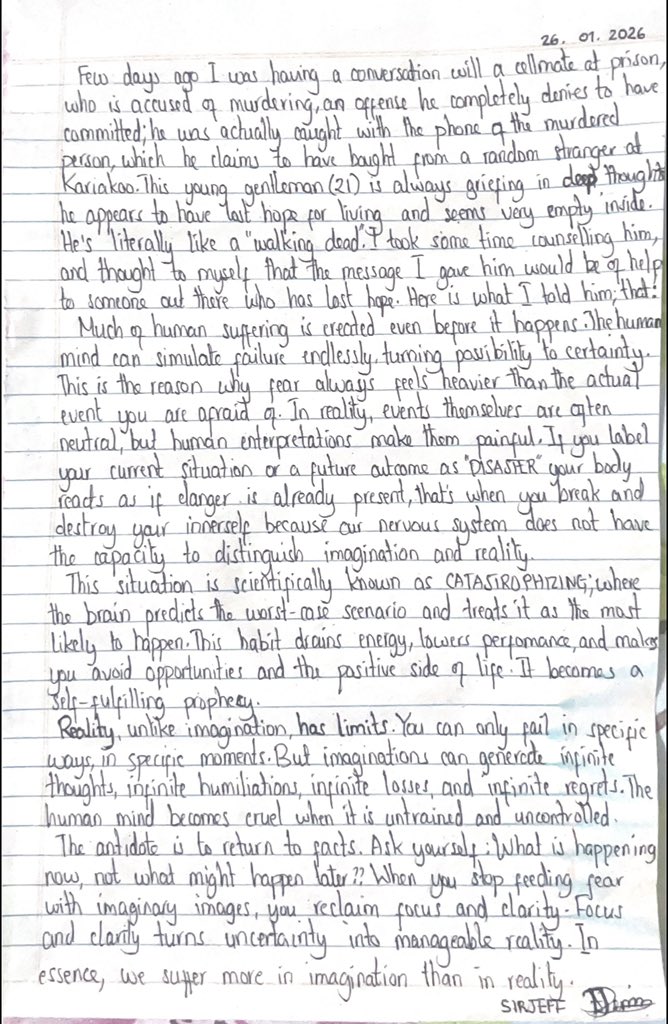 26. 01. 2026
Few days ago I was having a conversation will a cellmate at prison,
who is accused of murdering, an offense he completely denies to have
committed; he was actually caught with the phone of the murdered
person, which he claims to have bought from a random stranger at
Kariakoo. This young gentleman (21) is always griefing in deep thoughts
he appears to have lost hope for living and seems very empty inside.
He's literally like a "walking dead". I took some time counselling him,
and thought to myself that the message I gave him would be of help
to someone out there who has lost hope. Here is what I told him; that:
Much of human suffering is created even before it happens. The human
mind can simulate failure endlessly, turning possibility to certainty.
This is the reason why fear always feels heavier than the actual
event you are afraid of. In reality, events themselves are often
neutral, but human enterpretations make them painful. If you label
your current situation or a future outcome as "DISASTER" your body
reacts as if danger is already present, that's when you break and
destroy your innerself because our nervous system does not have
the capacity to distinguish imagination and reality.
This situation is scientifically known as CATASTROPHIZING; where
the brain predicts the worst-case scenario and treats it as the most
likely to happen. This habit drains energy, lowers perfomance, and makes
you avoid opportunities and the positive side of life. It becomes a
self-fulfilling prophecy.
Reality, unlike imagination, has limits. You can only fail in specific
ways, in specific moments. But imaginations can generate infinite
thoughts, infinite humiliations, infinite losses, and infinite regrets. The
human mind becomes cruel when it is untrained and uncontrolled.
The antidote is to return to facts. Ask yourself: What is happening
now, not what might happen later?? When you stop feeding fear
with imaginary images, you reclaim focus and clarity. Focus
and clarity turns uncertainty into manageable reality. In
essence, we suffer more in imagination than in reality.
SIRJEFF